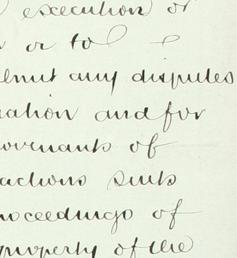 execution or
or to
lmit any disputes
ation and for
ovenants of
actions suits
roceedings of
property of the